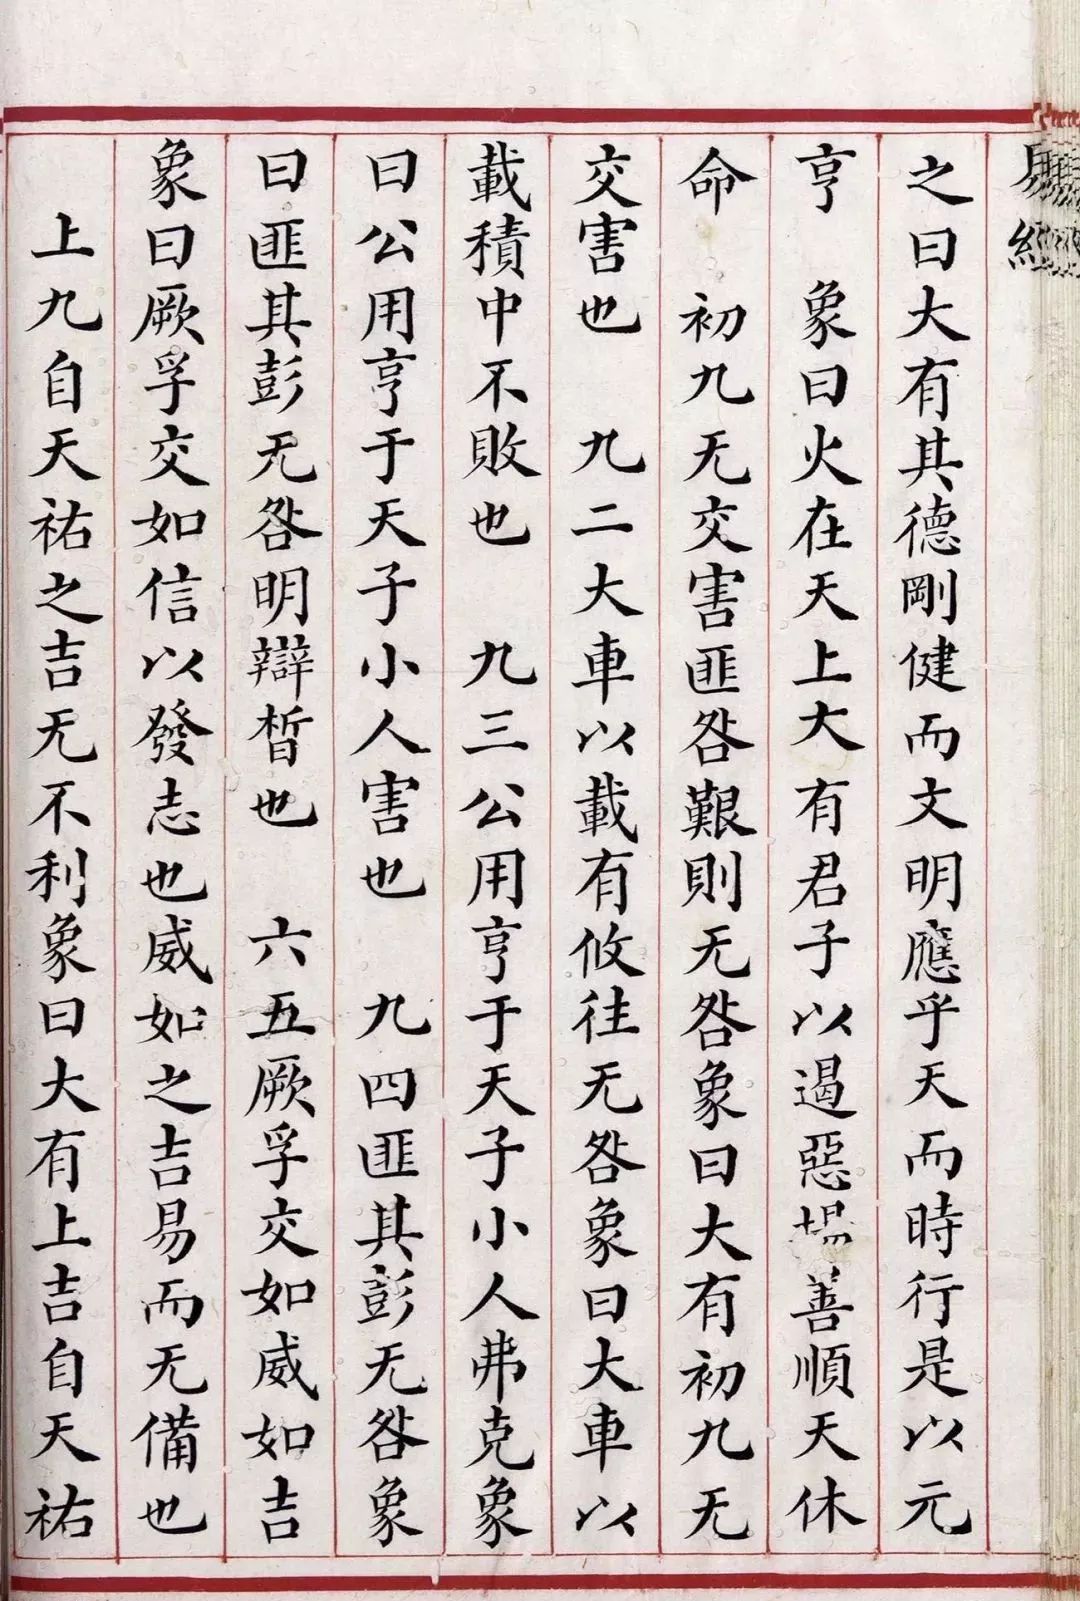 之曰大有其德剛健而文明應乎天而時行是以元
亨　象曰火在天上大有君子以遏惡善順天休
命　初九无交害匪咎艱則无咎象曰大有初九无
交害也　九二大車以載有攸往无咎象曰大車以
載積中不敗也　九三公用亨于天子小人弗克象
曰公用亨于天子小人害也　九四匪其彭无咎象
曰匪其彭无咎明辯晢也　六五厥孚交如威如吉
象曰厥孚交如信以發志也威如之吉易而无備也
上九自天祐之吉无不利象曰大有上吉自天祐